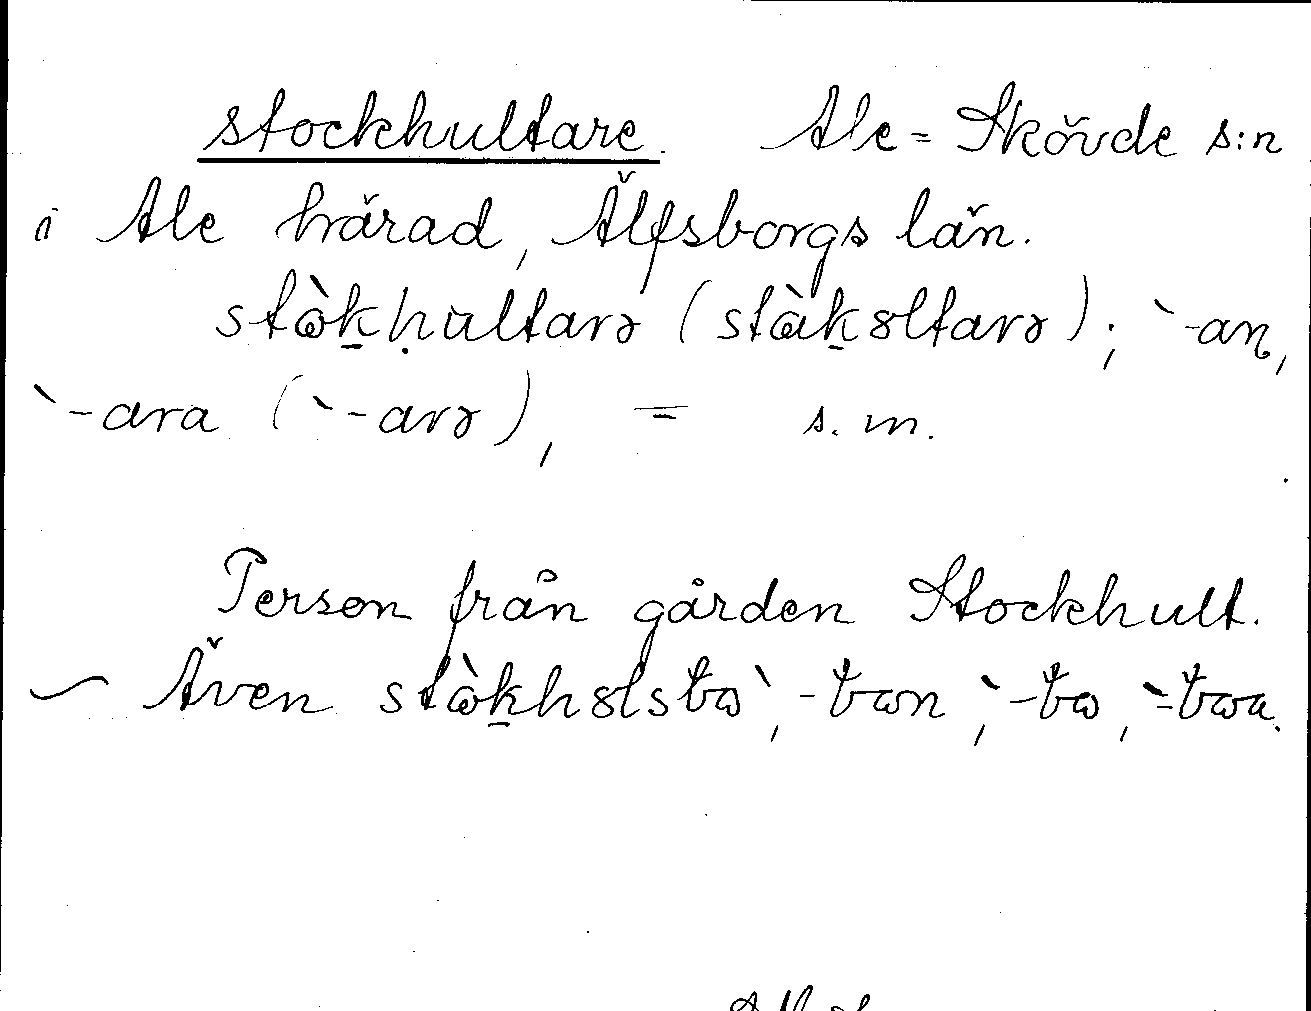 stockhultare. Ale-Skövde s:n
i Ale härad, Älfsborgs län.
stὼk̠ḥùltarə (stὼk̠ȣltarə); `-an,
`-ara (`-arə), = s.m.
Person från gården Stockhult.
~ Även stὼk̠hȣlsbω`, -bωn, `-bω, `-bωa.